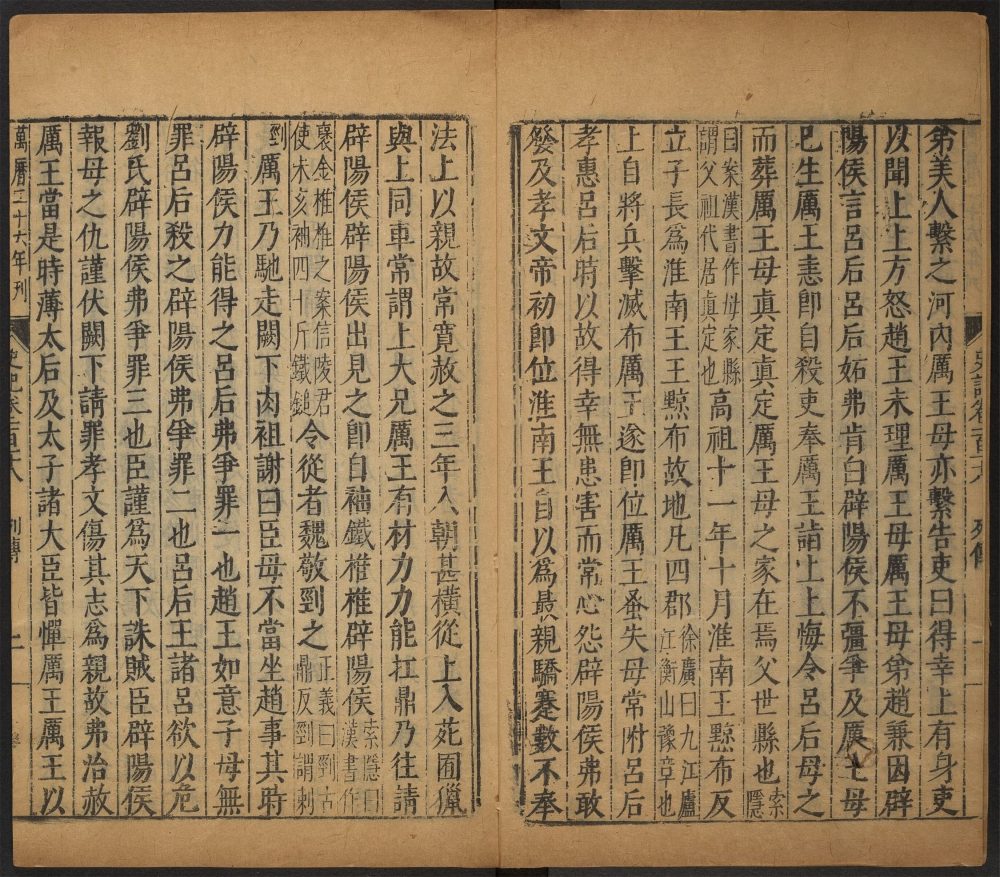 弟美人繫之河內厲王母亦繫告吏曰得幸上有身吏
以聞上上方怒趙王未理厲王母厲王母弟趙兼因辟
陽侯言呂后呂后妬弗肯白辟陽侯不彊爭及厲王母
已生厲王恚卽自殺吏奉厲王詣上上悔令呂后母之
而葬厲王母眞定眞定厲王母之家在焉父世縣也索隱
曰案漢書作母家縣謂父祖代居眞定也高祖十一年十月淮南王黥布反
立子長爲淮南王王黥布故地凡四郡徐廣曰九江廬江衡山豫章也
上自將兵擊滅布厲王遂卽位厲王蚤失母常附呂后
孝惠呂后時以故得幸無患害而常心怨辟陽侯弗敢
發及孝文帝初卽位淮南王自以爲最親驕蹇數不奉
史記卷一百十八 列傳
法上以親故常寬赦之三年入朝甚橫從上入苑囿獵
與上同車常謂上大兄厲王有材力力能扛鼎乃往請
辟陽侯辟陽侯出見之卽自袖鐵椎椎辟陽侯索隱曰漢書作
褎金椎椎之案信陵君使朱亥袖四十斤鐵鎚令從者魏敬剄之正義曰剄古鼎反剄謂刺
剄厲王乃馳走闕下肉袒謝曰臣母不當坐趙事其時
辟陽侯力能得之呂后弗爭罪一也趙王如意子母無
罪呂后殺之辟陽侯弗爭罪二也呂后王諸呂欲以危
劉氏辟陽侯弗爭罪三也臣謹爲天下誅賊臣辟陽侯
報母之仇謹伏闕下請罪孝文傷其志爲親故弗治赦
厲王當是時薄太后及太子諸大臣皆憚厲王厲王以
萬曆二十六年刊 史記卷一百十八 列傳